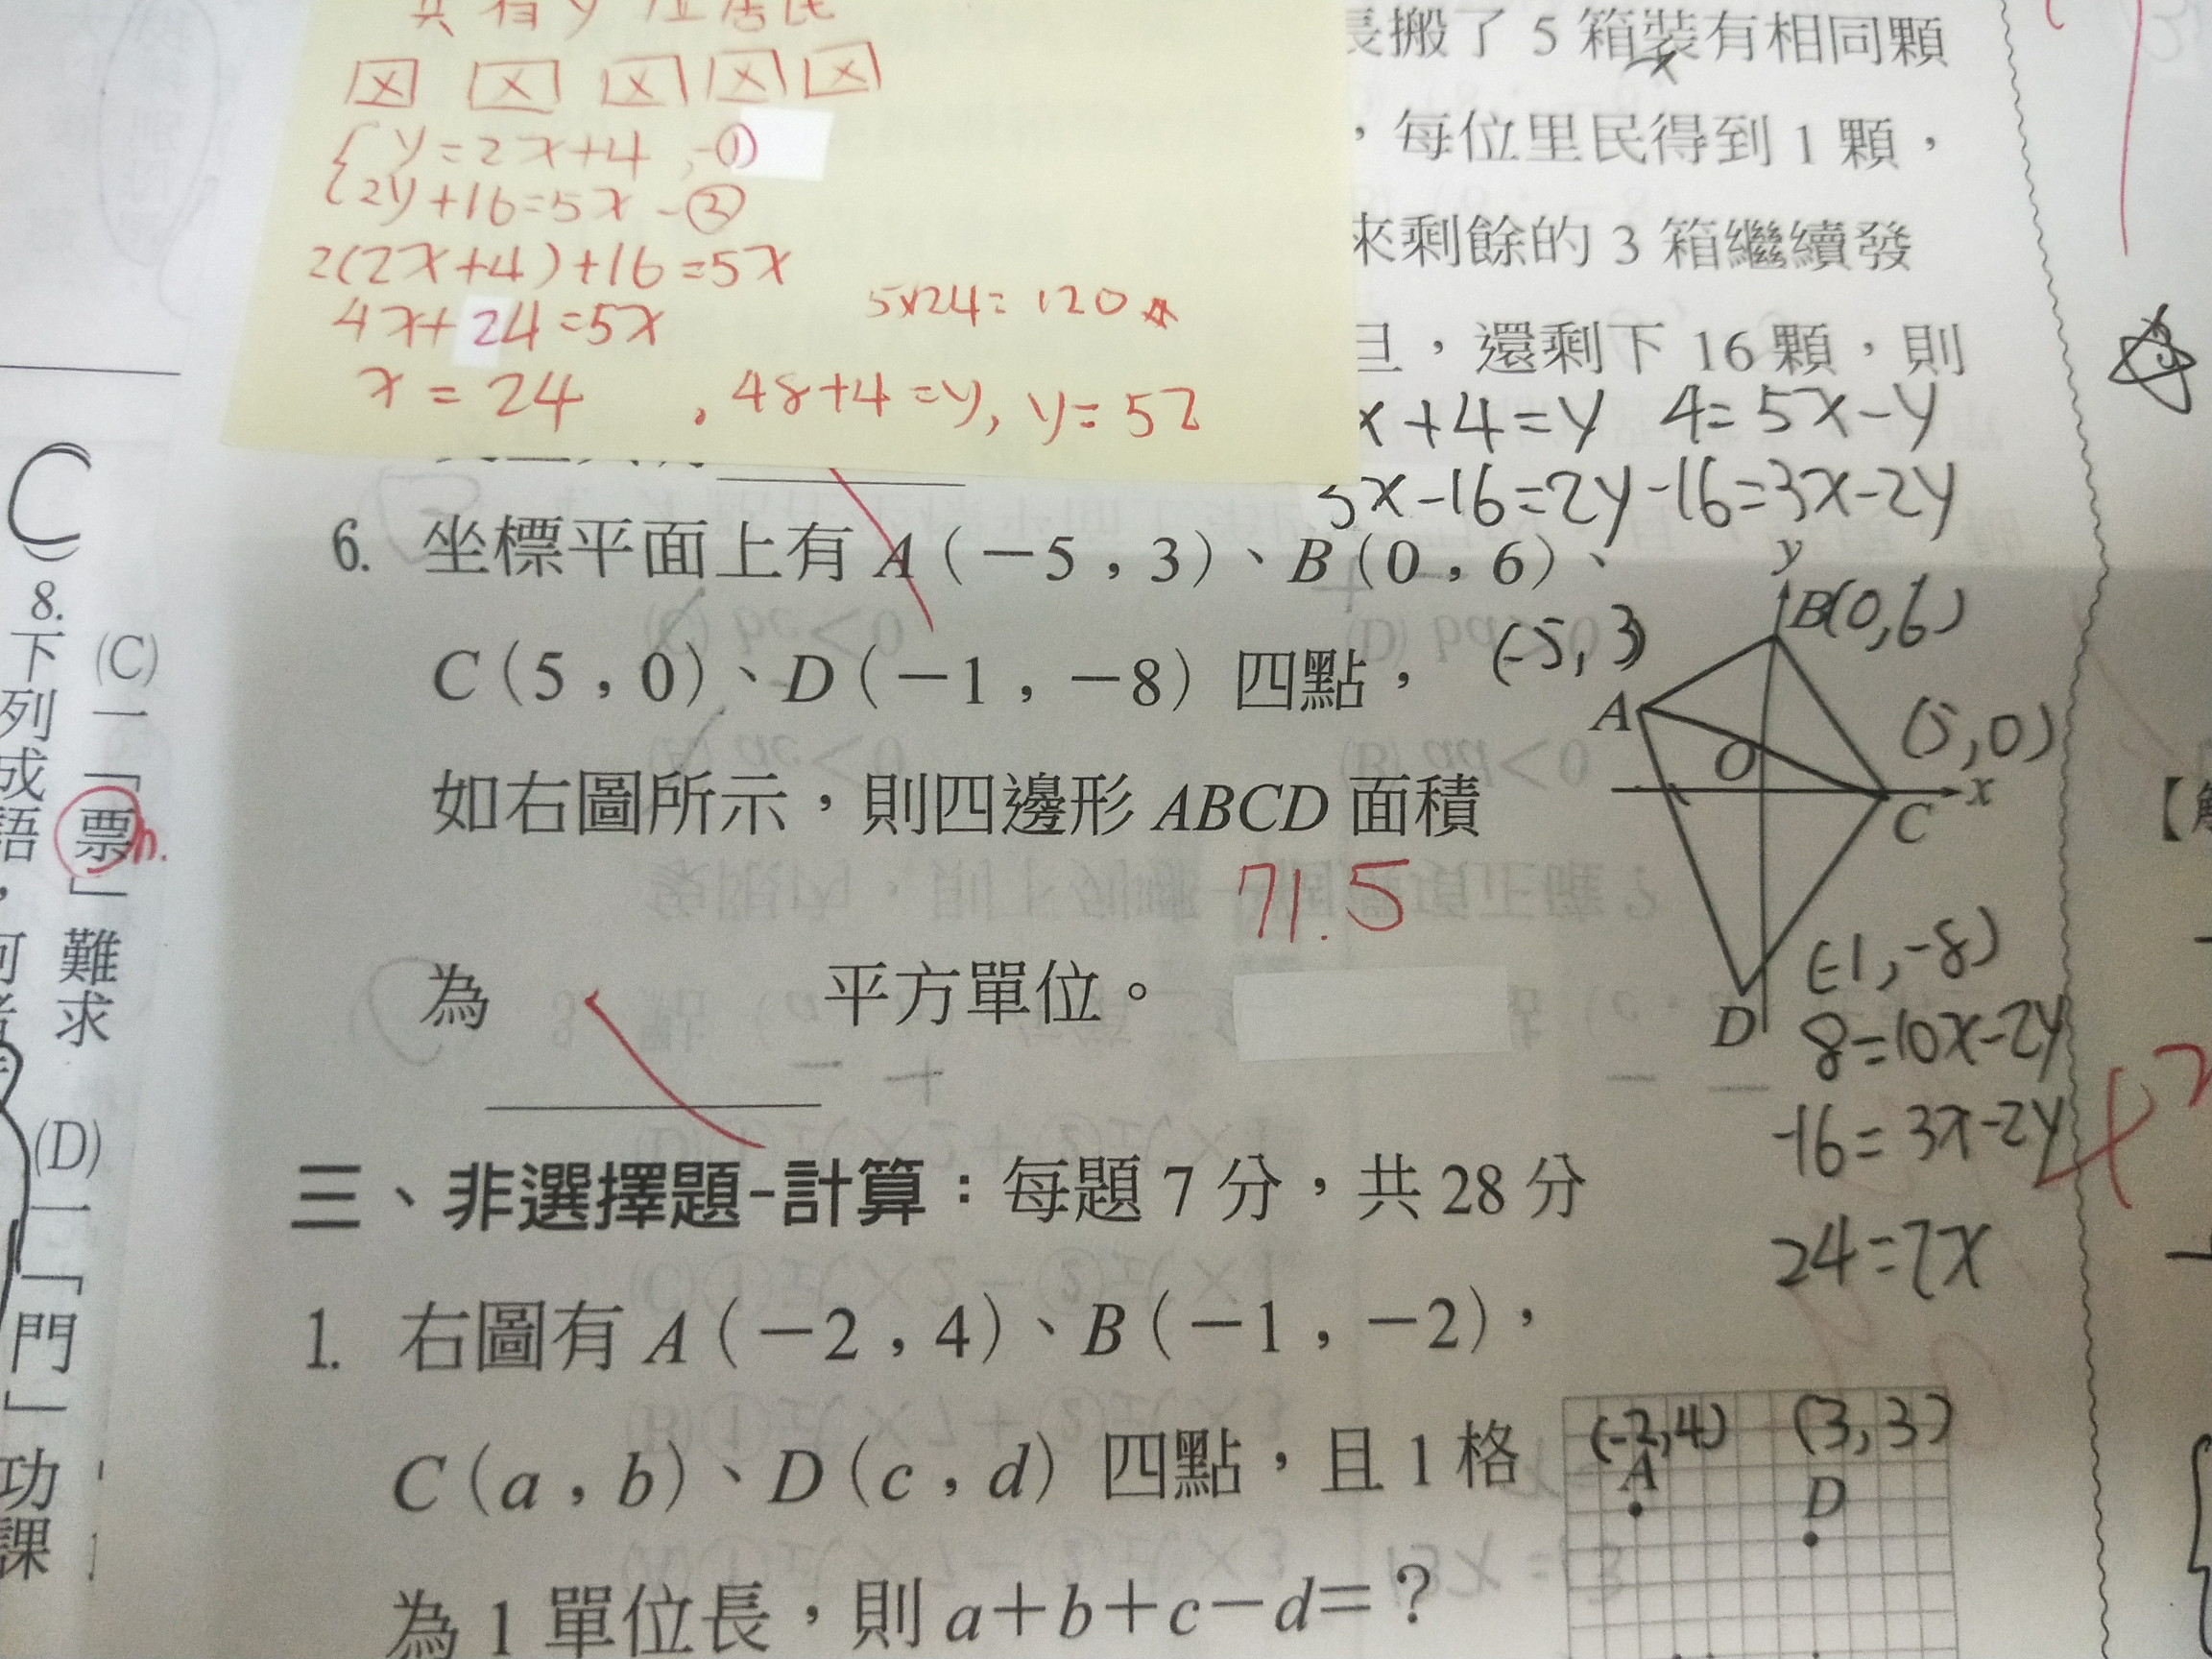 共有y位居民
x x x x x
y=2x+4,-①
2y+16=5x-②
2(2x+4)+16=5x
4x+24=5x
5×24=120
x=24,48+4=y,y=52
長搬了5箱裝有相同顆
x
,每位里民得到1顆,
來剩餘的3箱繼續發
旦,還剩下16顆,則
x+4=y 4=5x-y
3x-16=2y -16=3x-2y
6. 坐標平面上有A(-5,3)、B(0,6)、
C(5,0)、D(-1,-8)四點,
如右圖所示,則四邊形ABCD面積
71.5
為 平方單位。
y
B(0,6)
(-5,3)
A
O
(5,0)
x
C
(-1,-8)
D
8=10x-2y
-16=3x-2y
24=7x
三、非選擇題-計算:每題7分,共28分
1. 右圖有A(-2,4)、B(-1,-2),
C(a,b)、D(c,d)四點,且1格
為1單位長,則a+b+c-d=?
(-2,4) (3,3)
A D
C
8.
下列成語,何者
(C)一「票」難求
(D)一「門」功課